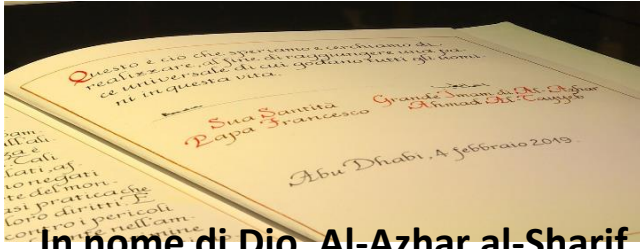 Questo è ciò che speriamo e cerchiamo di
realizzare, al fine di raggiungere una pa
ce universale di cui godano tutti gli uomi
ni in questa vita.
Sua Santità
Papa Francesco
Grande Imam di Al-Azhar
Ahmad Al-Tayyeb
Abu Dhabi, 4 febbraio 2019.
negati
del mon
pratica che
loro diritti È
contro i pericoli
nell'am
In nome di Dio, Al-Azhar al-Sharif